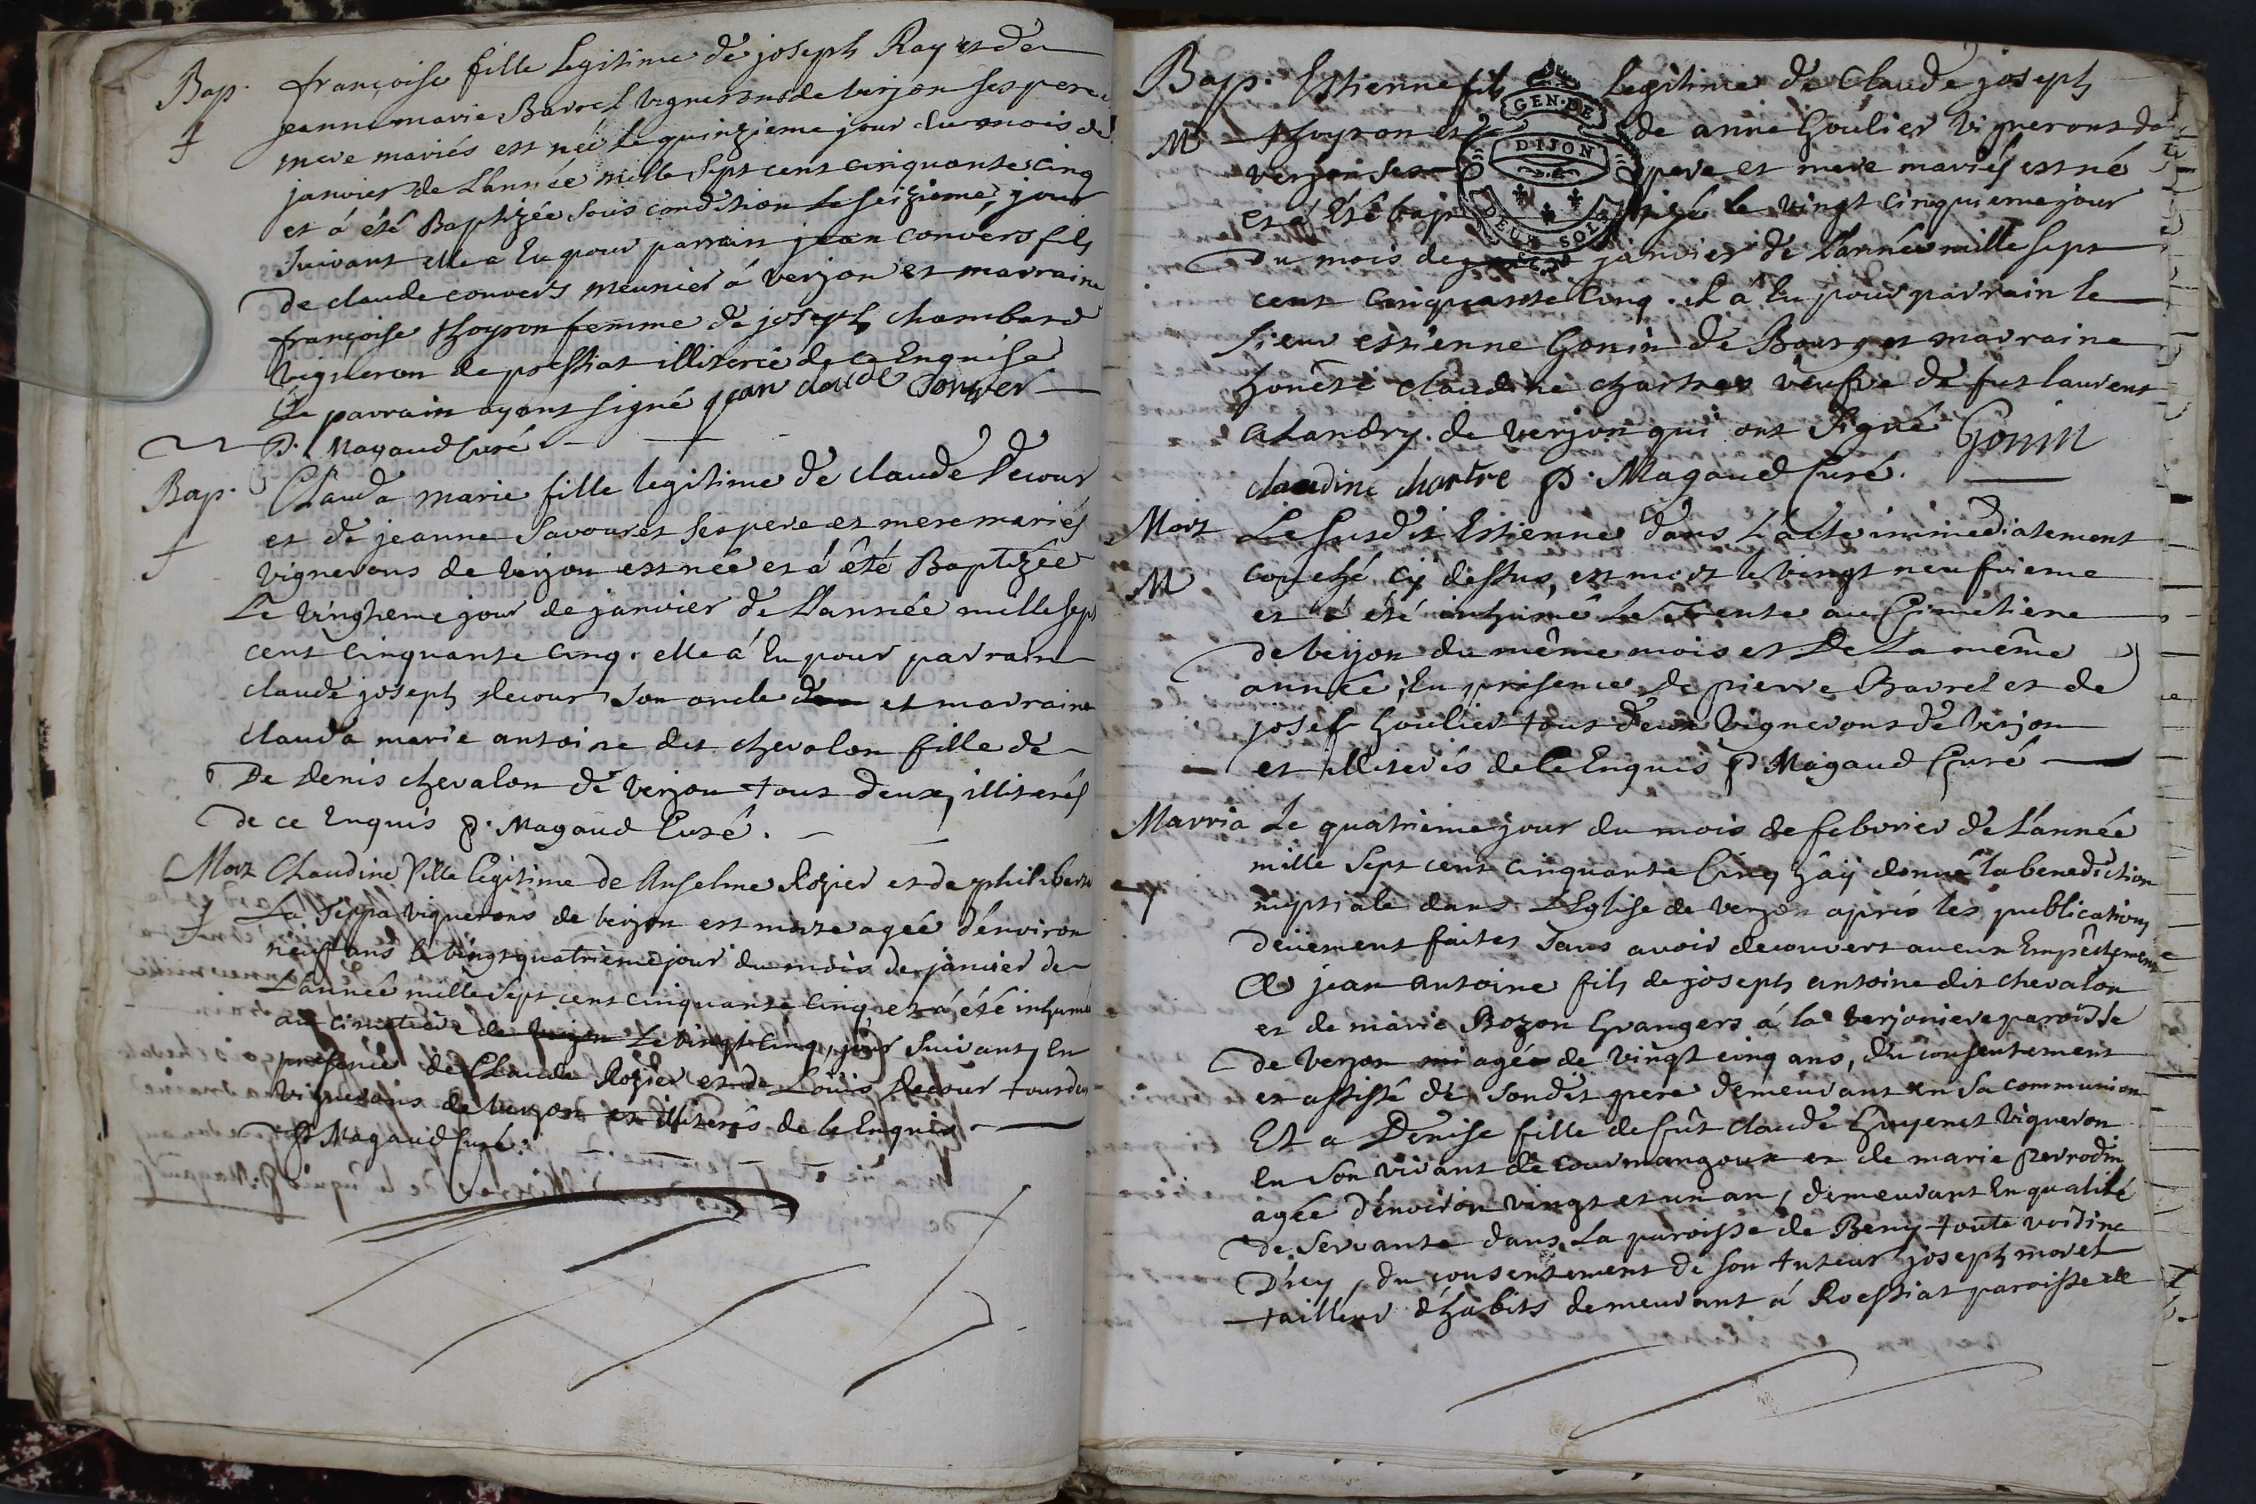 Bap. françoise fille Legitime de joseph Ray et de
‡ jeanne marie Barrel vignerons de verjon ses pere et
mere mariés est née le quinzieme jour du mois de
janvier de L'année mille sept cent cinquante cinq
et á été Baptizée sous condition le seizieme jour
suivant elle a Eu pour parrain jean convers fils
de claude convers meunier á verjon et marraine
françoise thoyron femme de joseph chambard
vigneron de pressiat illiterée de ce Enquise
Le parrain ayant signé jean claude Conver
P. Magaud Curé.
Bap. Clauda marie fille legitime de claude Decour
et de jeanne Savouret ses pere et mere mariés
vignerons de verjon est née et á été Baptizée
Le vingtieme jour de janvier de L'année mille sept
cent cinquante cinq. elle á Eu pour parrain
claude joseph decour son oncle et marraine
clauda marie antoine dit chevalon fille de
De Denis chevalon de verjon tout deux illiterés
de ce Enquis P. Magaud Curé.
Mort Claudine fille legitime de Anselme Rozier et de philiberte
‡ La Seppa vignerons de verjon est morte agée d'environ
neuf ans le vingt quatrieme jour du mois de janvier de
L'année mille sept cent cinquante cinq et á été inhumé
au cimetiere de verjon le vingt cinq, jour suivant, En
presence de Claude Rozier et de Louis Decour tous deux
vignerons de verjon et illiterés de ce Enquis
P Magaud Curé.
Bap. Estienne fils Legitime de Claude joseph
M thoyron et de anne Goulier vignerons de
verjon ses pere et mere mariés est né
et á Eté bap tizé le vingt cinquieme jour
du mois de janvier de L'année mille sept
cent cinquante cinq. il a Eu pour parrain le
sieur estienne Gonin de Bourg et marraine
honête claudine chartre veufve de fut laurent
alandry de verjon qui ont signé Gonin
claudine chartre P. Magaud Curé.
Mort Le susdit Estienne dans L'acte immediatement
M couché cy dessus, est mort le vingt neufvieme
et á été inhumé le Trente au Cimetiere
de verjon du même mois et De La même
année, En presence de pierre Barrel et de
josef Goulier tous deux vignerons de verjon
et illiterés de ce Enquis P Magaud Curé
Marria Le quatrieme jour du mois de febvrier de L'année
mille sept cent cinquante Cinq háy donné la benediction
nuptiale dans L'Eglise de verjon aprés les publications
deüement faites sans avoir decouvert aucun Empêchement
A jean antoine fils de joseph antoine dit chevalon
et de marie Bozon Grangers á la verjoniere paroisse
de verjon agée de vingt cinq ans, du consentement
et assisté de sondit pere demeurant en sa communion
Et a Denise fille de fût claude Guyenet vigneron
En son vivant de courmangoux et de marie perrodin
agée d'environ vingt et un an, demeurant En qualité
de servante dans La paroisse de Beny toute voisine
D'icy, du consentement de son tuteur joseph moret
tailleur d'habits demeurant á Roissiat paroisse de
GEN. DE
DIJON
DEUX SOLS